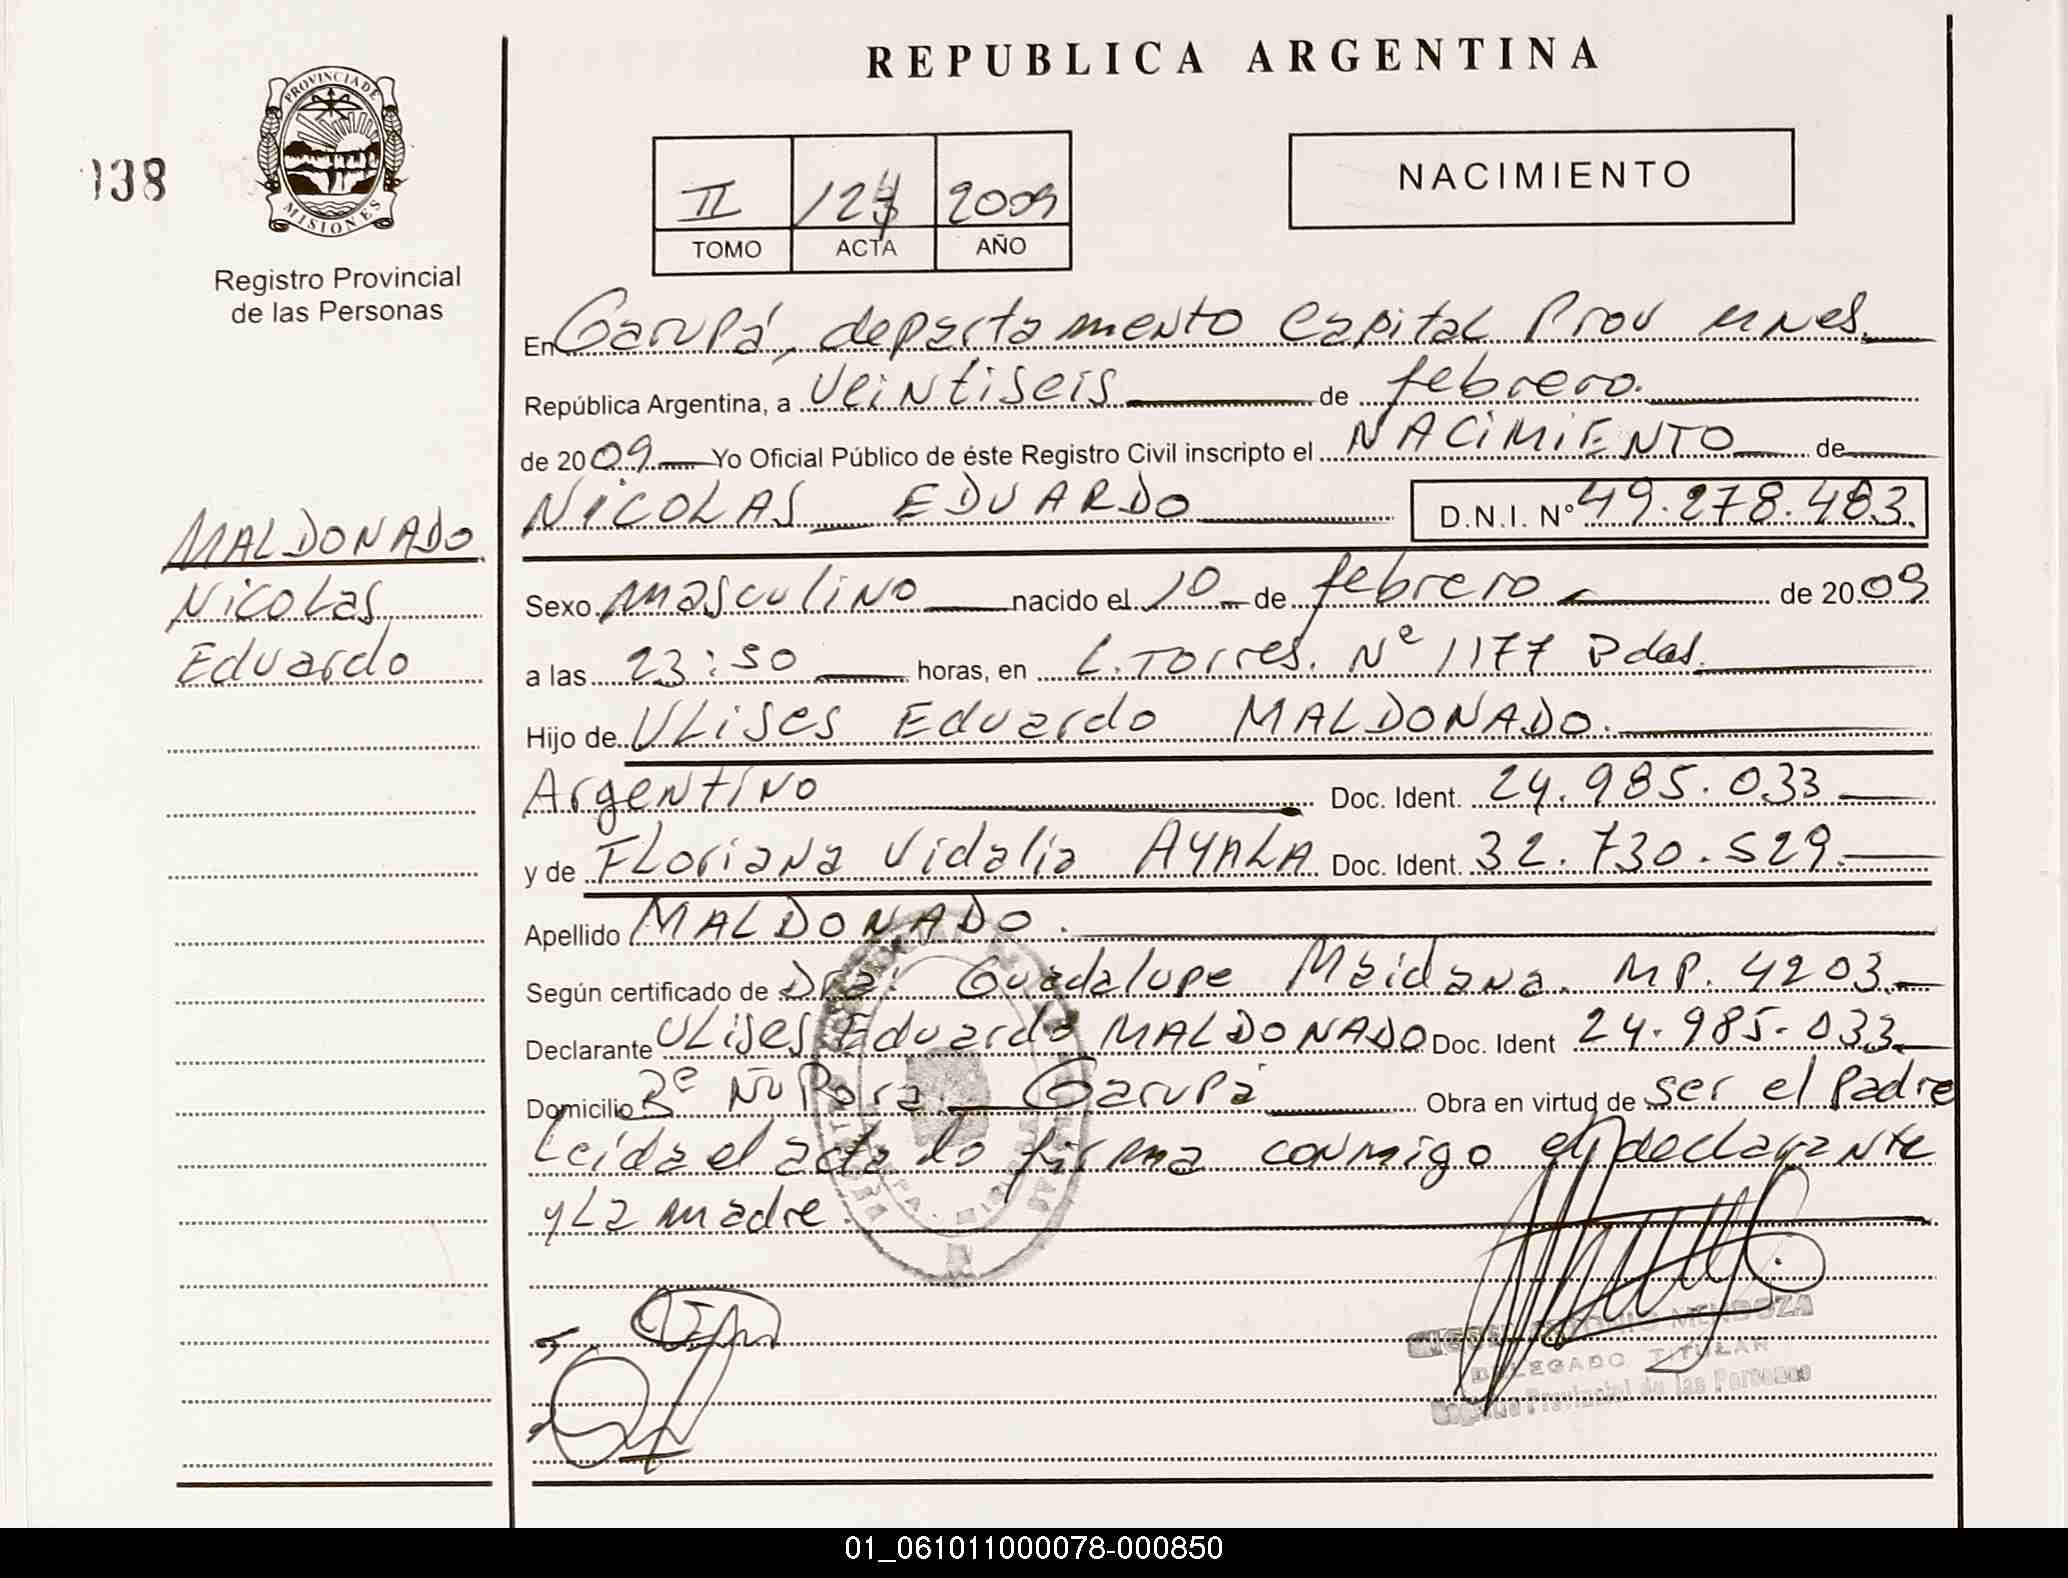 REPUBLICA ARGENTINA
PROVINCIA DE MISIONES
138
Registro Provincial
de las Personas
NACIMIENTO
II 2009
TOMO ACTA AÑO
En Garupá, departamento Capital Prov Mnes.
República Argentina, a Veintiseis de febrero.
de 2009 Yo Oficial Público de éste Registro Civil inscripto el NACIMIENTO de
NICOLAS EDUARDO D.N.I. Nº 49.278.483.
MALDONADO
Nicolas
Eduardo
Sexo masculino nacido el 10 de febrero de 2009
a las 23:50 horas, en L. Torres. Nº 1177 Pdas.
Hijo de Ulises Eduardo MALDONADO.
Argentino Doc. Ident. 24.985.033
y de Floriana Vidalia AYALA Doc. Ident. 32.730.529.
Apellido MALDONADO.
Según certificado de Dra: Guadalupe Maidana. MP. 4203.
Declarante Ulises Eduardo MALDONADO Doc. Ident 24.985.033
Domicilio Bº Ñu Pora. Garupá Obra en virtud de ser el padre
Leída el acta la firma conmigo el declarante
y La madre.
MIGUEL ANTONIO MENDOZA
DELEGADO TITULAR
Registro Provincial de las Personas
01_061011000078-000850